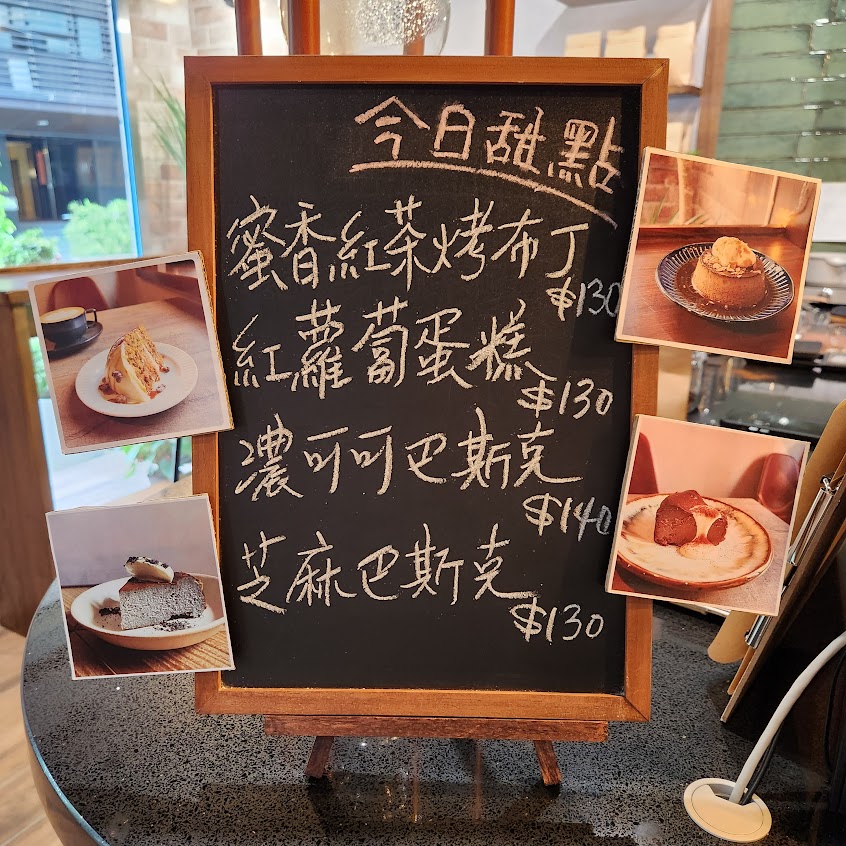 今日甜點
蜜香紅茶烤布丁
$130
紅蘿蔔蛋糕
$130
濃可可巴斯克
$140
芝麻巴斯克
$130